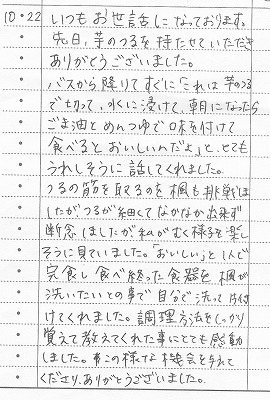 10・22 いつもお世話になっております。
先日、芋のつるを持たせていただき
ありがとうございました。
バスから降りてすぐに「これは芋のつる
で切って、水に浸けて、朝になったら
ごま油とめんつゆで味を付けて
食べるとおいしいんだよ」と、とても
うれしそうに話してくれました。
つるの筋を取るのを楓も挑戦しま
したがつるが細くてなかなか出来ず
断念しましたが私がむく様子を楽し
そうに見ていました。「おいしい」と1人で
完食し食べ終った食器を楓が
洗いたいとの事で自分で洗って片付
けてくれました。調理方法をしっかり
覚えて教えてくれた事にとても感動
しました。この様な機会を与えて
くださり、ありがとうございました。